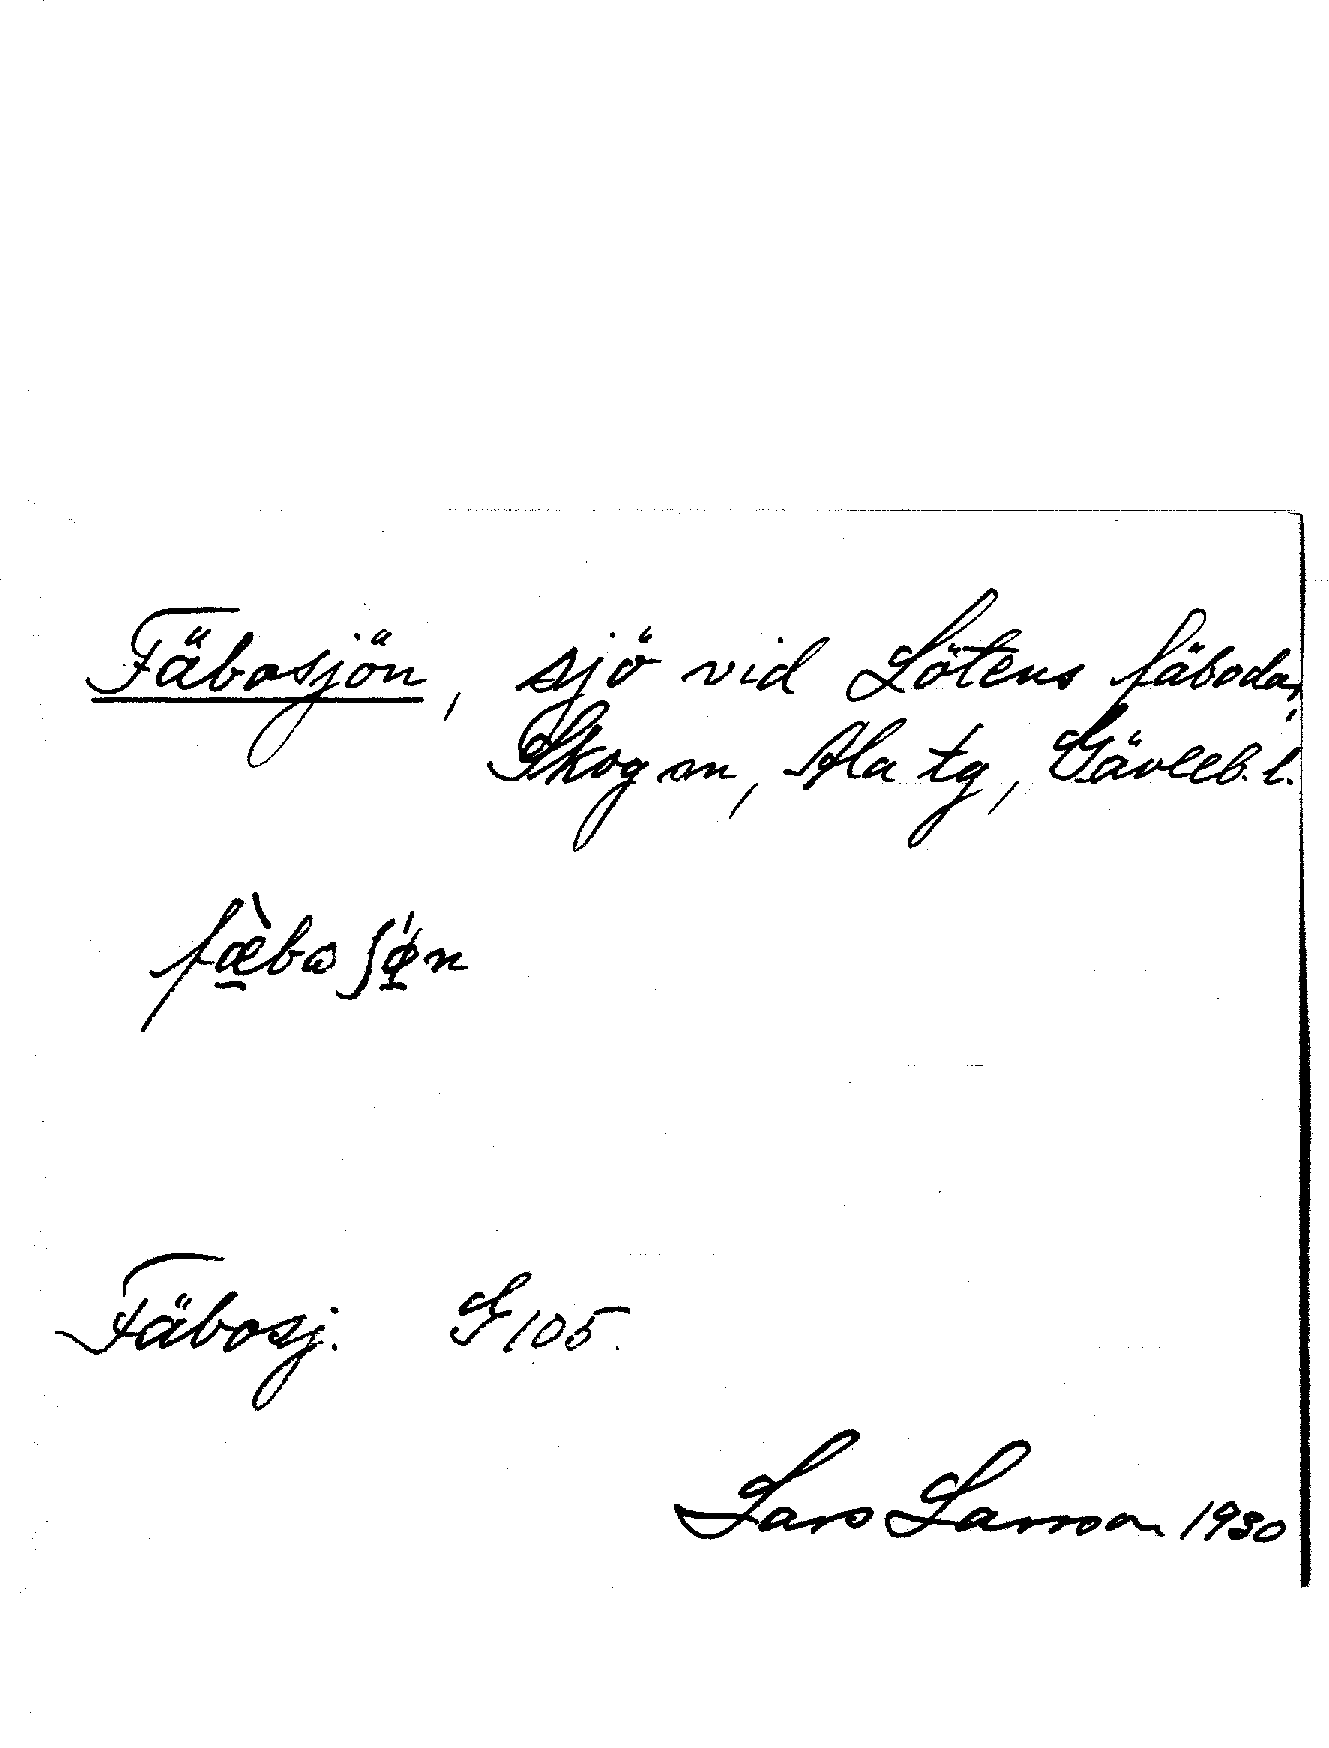 Fäbosjön, sjö vid Lötens fäbodar,
Skog sn, Ala tg, Gävleb. l.
fæ̲̀bo ʃǿ̲n
Fäbosj. G 105.
Lars Larsson 1930